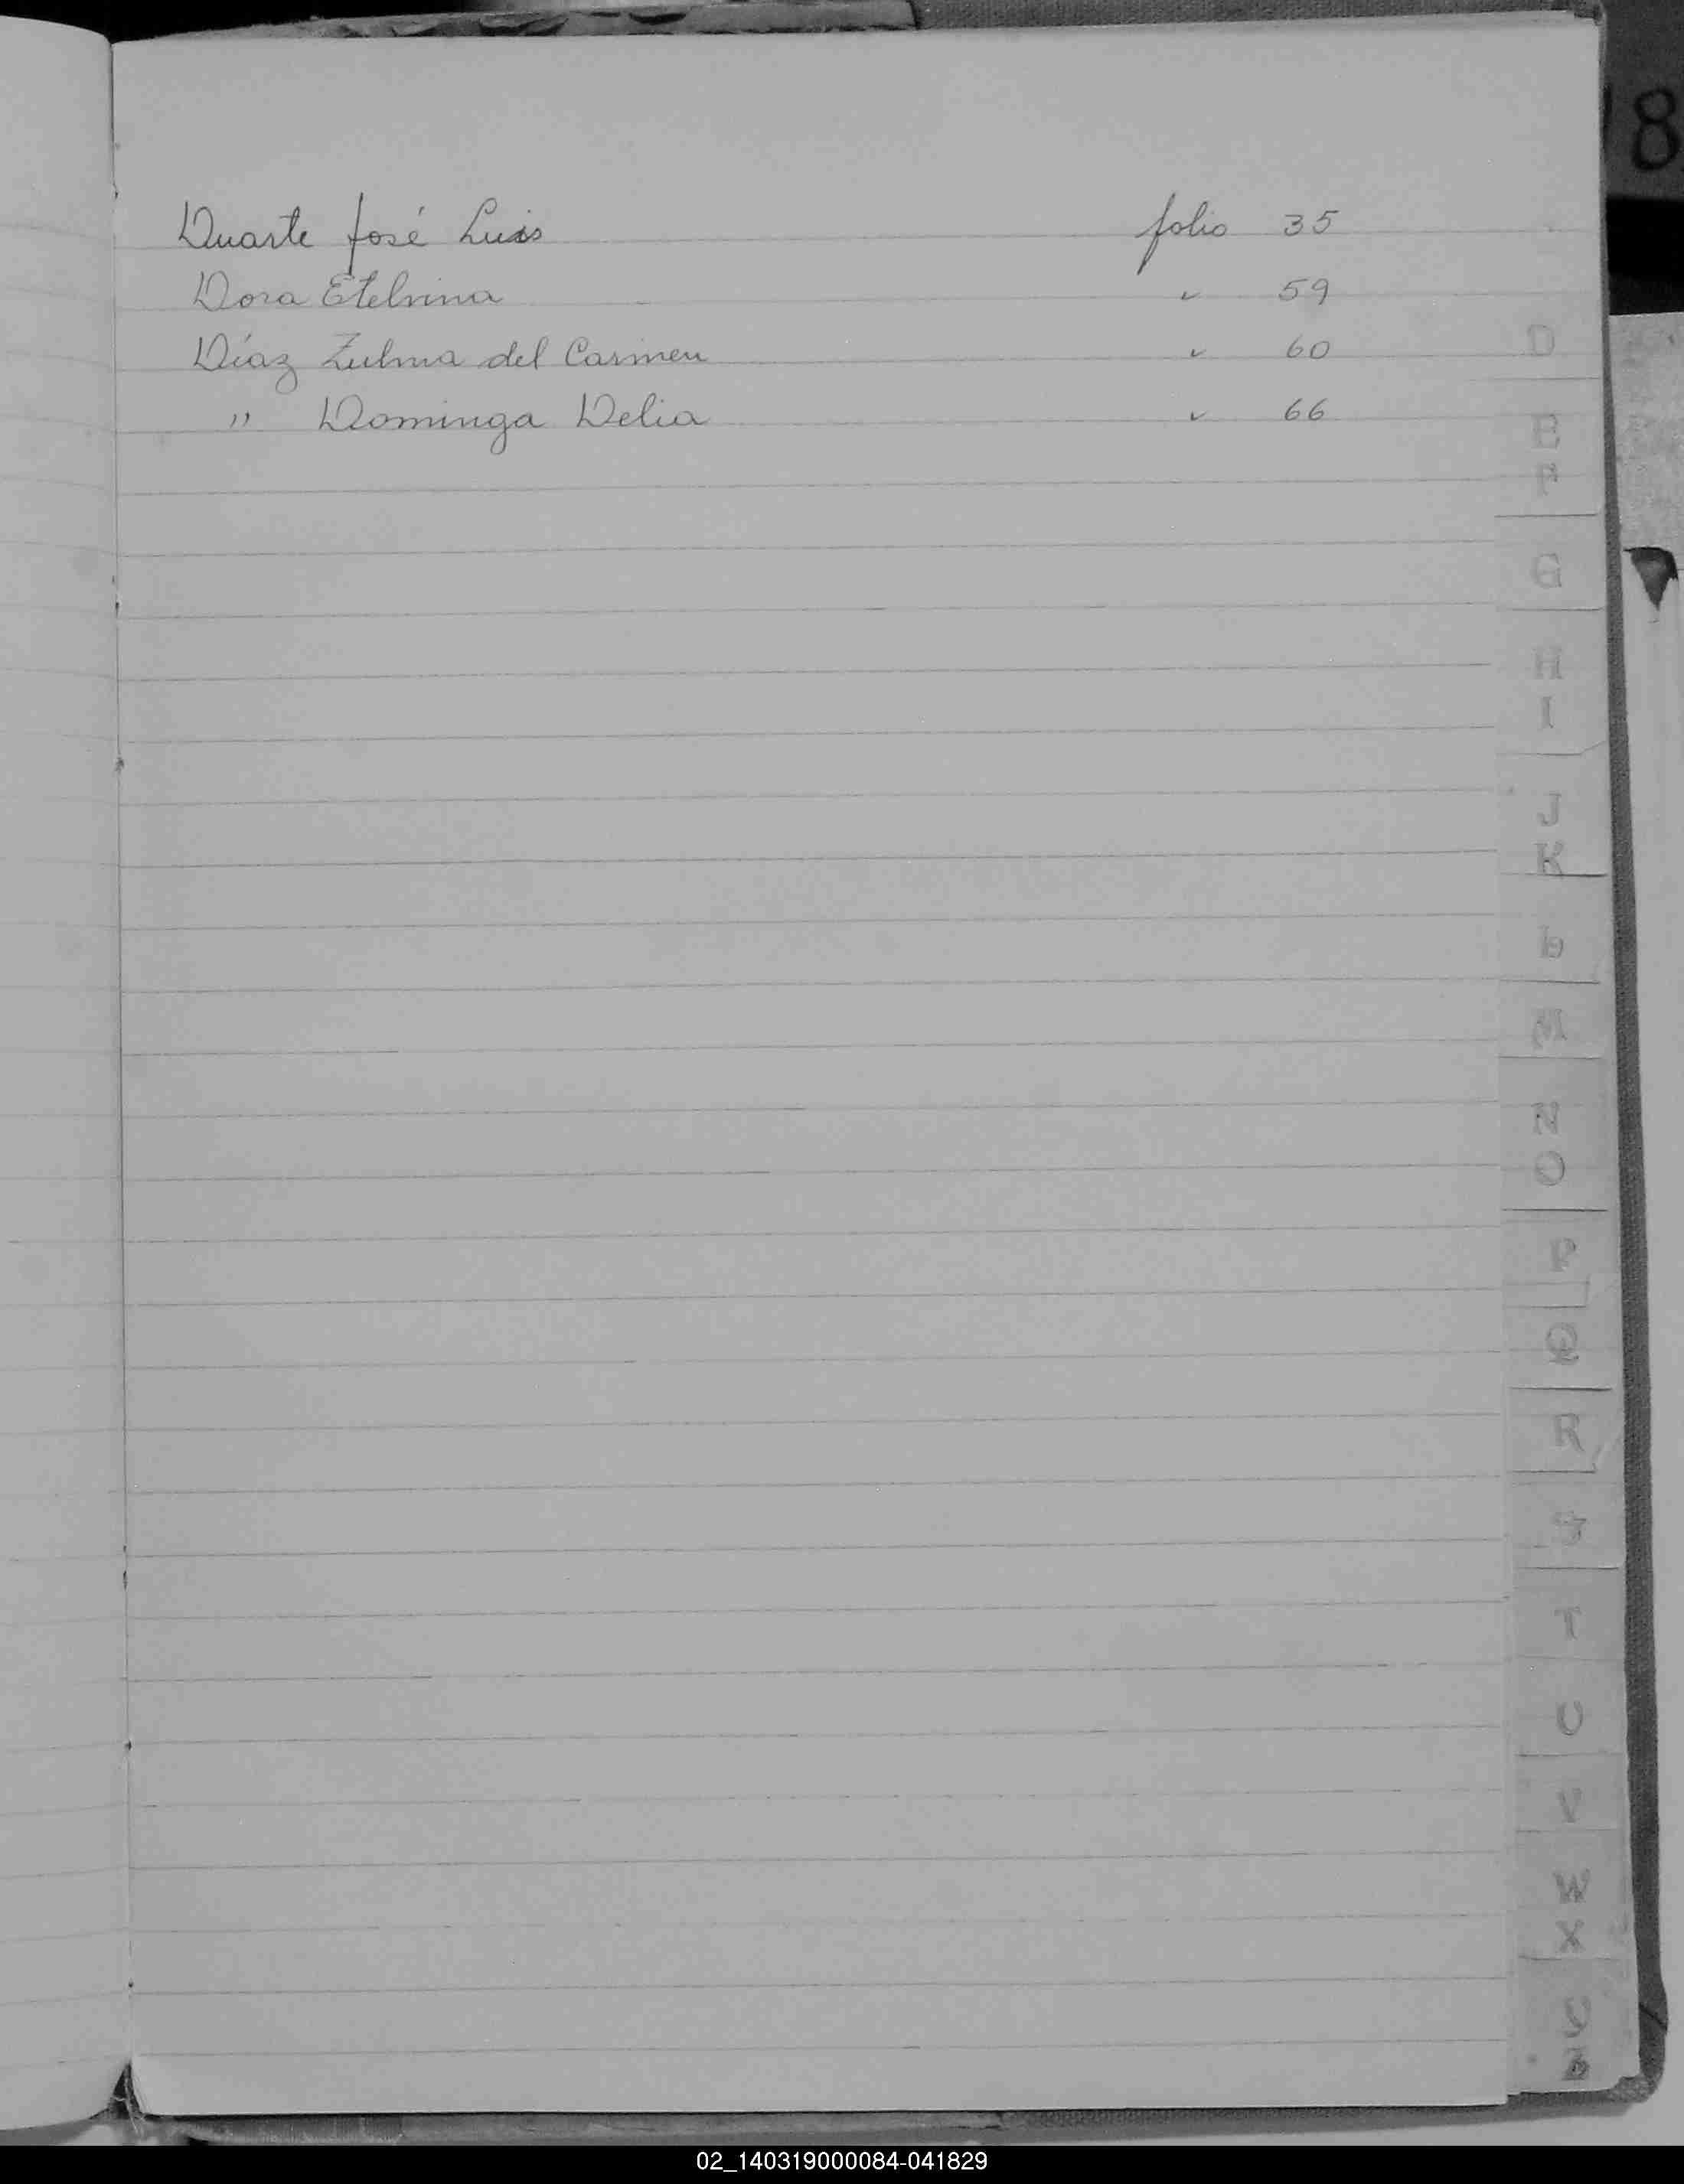 Duarte José Luis folio 35
Dora Etelvina " 59
Díaz Zulma del Carmen " 60
" Dominga Delia " 66
D
E
F
G
H
I
J
K
L
M
N
O
P
Q
R
S
T
U
V
W
X
Y
Z
8
02_140319000084-041829